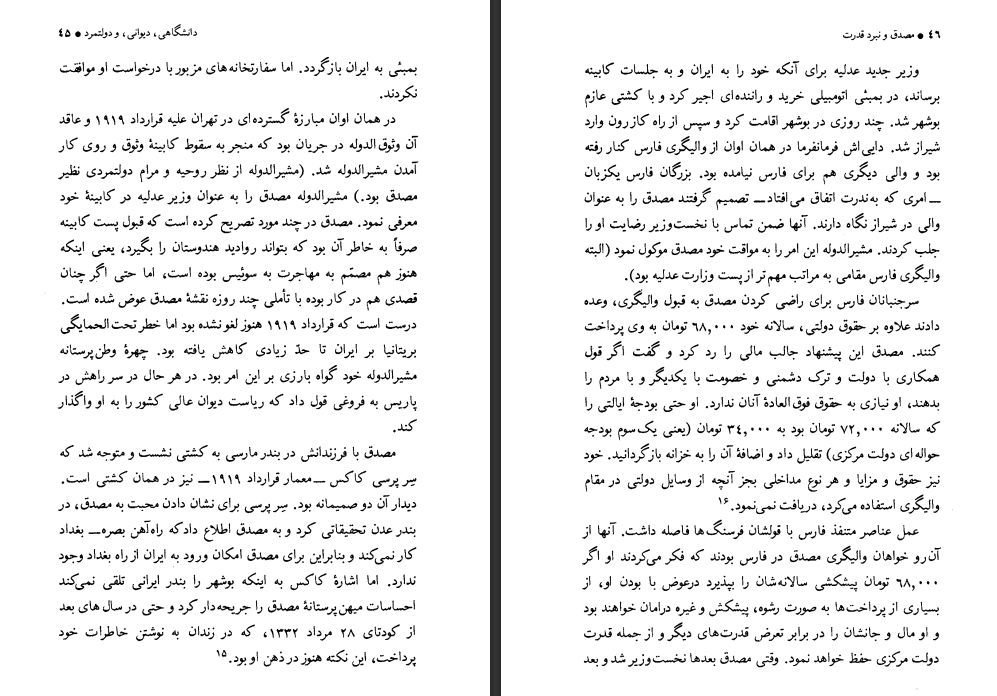 دانشگاهی، دیوانی، و دولتمرد ● ۴۵
بمبئی به ایران بازگردد. اما سفارتخانه‌های مزبور با درخواست او موافقت
نکردند.
در همان اوان مبارزهٔ گسترده‌ای در تهران علیه قرارداد ۱۹۱۹ و عاقد
آن وثوق‌الدوله در جریان بود که منجر به سقوط کابینهٔ وثوق و روی کار
آمدن مشیرالدوله شد. (مشیرالدوله از نظر روحیه و مرام دولتمردی نظیر
مصدق بود.) مشیرالدوله مصدق را به عنوان وزیر عدلیه در کابینهٔ خود
معرفی نمود. مصدق در چند مورد تصریح کرده است که قبول پست کابینه
صرفاً به خاطر آن بود که بتواند روادید هندوستان را بگیرد، یعنی اینکه
هنوز هم مصمّم به مهاجرت به سوئیس بوده است، اما حتی اگر چنان
قصدی هم در کار بوده با تأملی چند روزه نقشهٔ مصدق عوض شده است.
درست است که قرارداد ۱۹۱۹ هنوز لغو نشده بود اما خطر تحت‌الحمایگی
بریتانیا بر ایران تا حدّ زیادی کاهش یافته بود. چهرهٔ وطن‌پرستانه
مشیرالدوله خود گواه بارزی بر این امر بود. در هر حال در سر راهش در
پاریس به فروغی قول داد که ریاست دیوان عالی کشور را به او واگذار
کند.
مصدق با فرزندانش در بندر مارسی به کشتی نشست و متوجه شد که
سِر پرسی کاکس ــ معمار قرارداد ۱۹۱۹ ــ نیز در همان کشتی است.
دیدار آن دو صمیمانه بود. سِر پرسی برای نشان دادن محبت به مصدق، در
بندر عدن تحقیقاتی کرد و به مصدق اطلاع داد که راه‌آهن بصره ــ بغداد
کار نمی‌کند و بنابراین برای مصدق امکان ورود به ایران از راه بغداد وجود
ندارد. اما اشارهٔ کاکس به اینکه بوشهر را بندر ایرانی تلقی نمی‌کند
احساسات میهن‌پرستانهٔ مصدق را جریحه‌دار کرد و حتی در سال‌های بعد
از کودتای ۲۸ مرداد ۱۳۳۲، که در زندان به نوشتن خاطرات خود
پرداخت، این نکته هنوز در ذهن او بود.۱۵
۴۶ ● مصدق و نبرد قدرت
وزیر جدید عدلیه برای آنکه خود را به ایران و به جلسات کابینه
برساند، در بمبئی اتومبیلی خرید و راننده‌ای اجیر کرد و با کشتی عازم
بوشهر شد. چند روزی در بوشهر اقامت کرد و سپس از راه کازرون وارد
شیراز شد. دایی‌اش فرمانفرما در همان اوان از والیگری فارس کنار رفته
بود و والی دیگری هم برای فارس نیامده بود. بزرگان فارس یکزبان
ــ امری که به‌ندرت اتفاق می‌افتاد ــ تصمیم گرفتند مصدق را به عنوان
والی در شیراز نگاه دارند. آنها ضمن تماس با نخست‌وزیر رضایت او را
جلب کردند. مشیرالدوله این امر را به مواقت خود مصدق موکول نمود (البته
والیگری فارس مقامی به مراتب مهم‌تر از پست وزارت عدلیه بود).
سرجنبانان فارس برای راضی کردن مصدق به قبول والیگری، وعده
دادند علاوه بر حقوق دولتی، سالانه خود ۶۸,۰۰۰ تومان به وی پرداخت
کنند. مصدق این پیشنهاد جالب مالی را رد کرد و گفت اگر قول
همکاری با دولت و ترک دشمنی و خصومت با یکدیگر و با مردم را
بدهند، او نیازی به حقوق فوق‌العادهٔ آنان ندارد. او حتی بودجهٔ ایالتی را
که سالانه ۷۲,۰۰۰ تومان بود به ۳۴,۰۰۰ تومان (یعنی یک سوم بودجه
حواله‌ای دولت مرکزی) تقلیل داد و اضافهٔ آن را به خزانه بازگردانید. خود
نیز حقوق و مزایا و هر نوع مداخلی بجز آنچه از وسایل دولتی در مقام
والیگری استفاده می‌کرد، دریافت نمی‌نمود.۱۶
عمل عناصر متنفذ فارس با قولشان فرسنگ‌ها فاصله داشت. آنها از
آن‌رو خواهان والیگری مصدق در فارس بودند که فکر می‌کردند او اگر
۶۸,۰۰۰ تومان پیشکشی سالانه‌شان را بپذیرد درعوض با بودن او، از
بسیاری از پرداخت‌ها به صورت رشوه، پیشکش و غیره درامان خواهند بود
و او مال و جانشان را در برابر تعرض قدرت‌های دیگر و از جمله قدرت
دولت مرکزی حفظ خواهد نمود. وقتی مصدق بعدها نخست‌وزیر شد و بعد